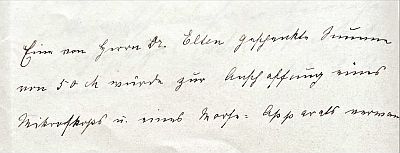 Eine von Herrn Dr. Elten geschenkte Summe
von 50 M wurde zur Anschaffung eines
Mikroskops u. eines Morse-Apparats verwan